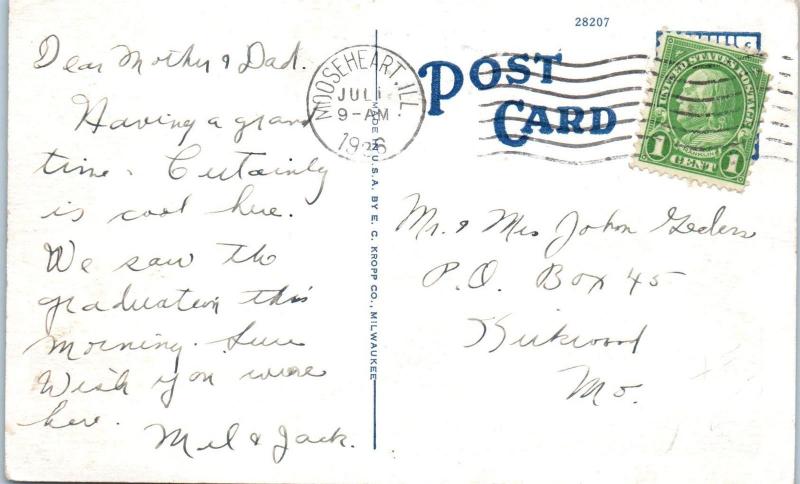 Dear Mother & Dad.
Having a grand
time. Certainly
is cool here.
We saw the
graduation this
morning. Sure
Wish you were
here.
Mel & Jack.
MADE IN U.S.A. BY E. C. KROPP CO., MILWAUKEE
28207
POST
CARD
MOOSEHEART, ILL.
JUL 1
9-AM
UNITED STATES POSTAGE
FRANKLIN
1 CENT 1
Mr. & Mrs John
P.O. Box 45
Kirkwood
Mo.